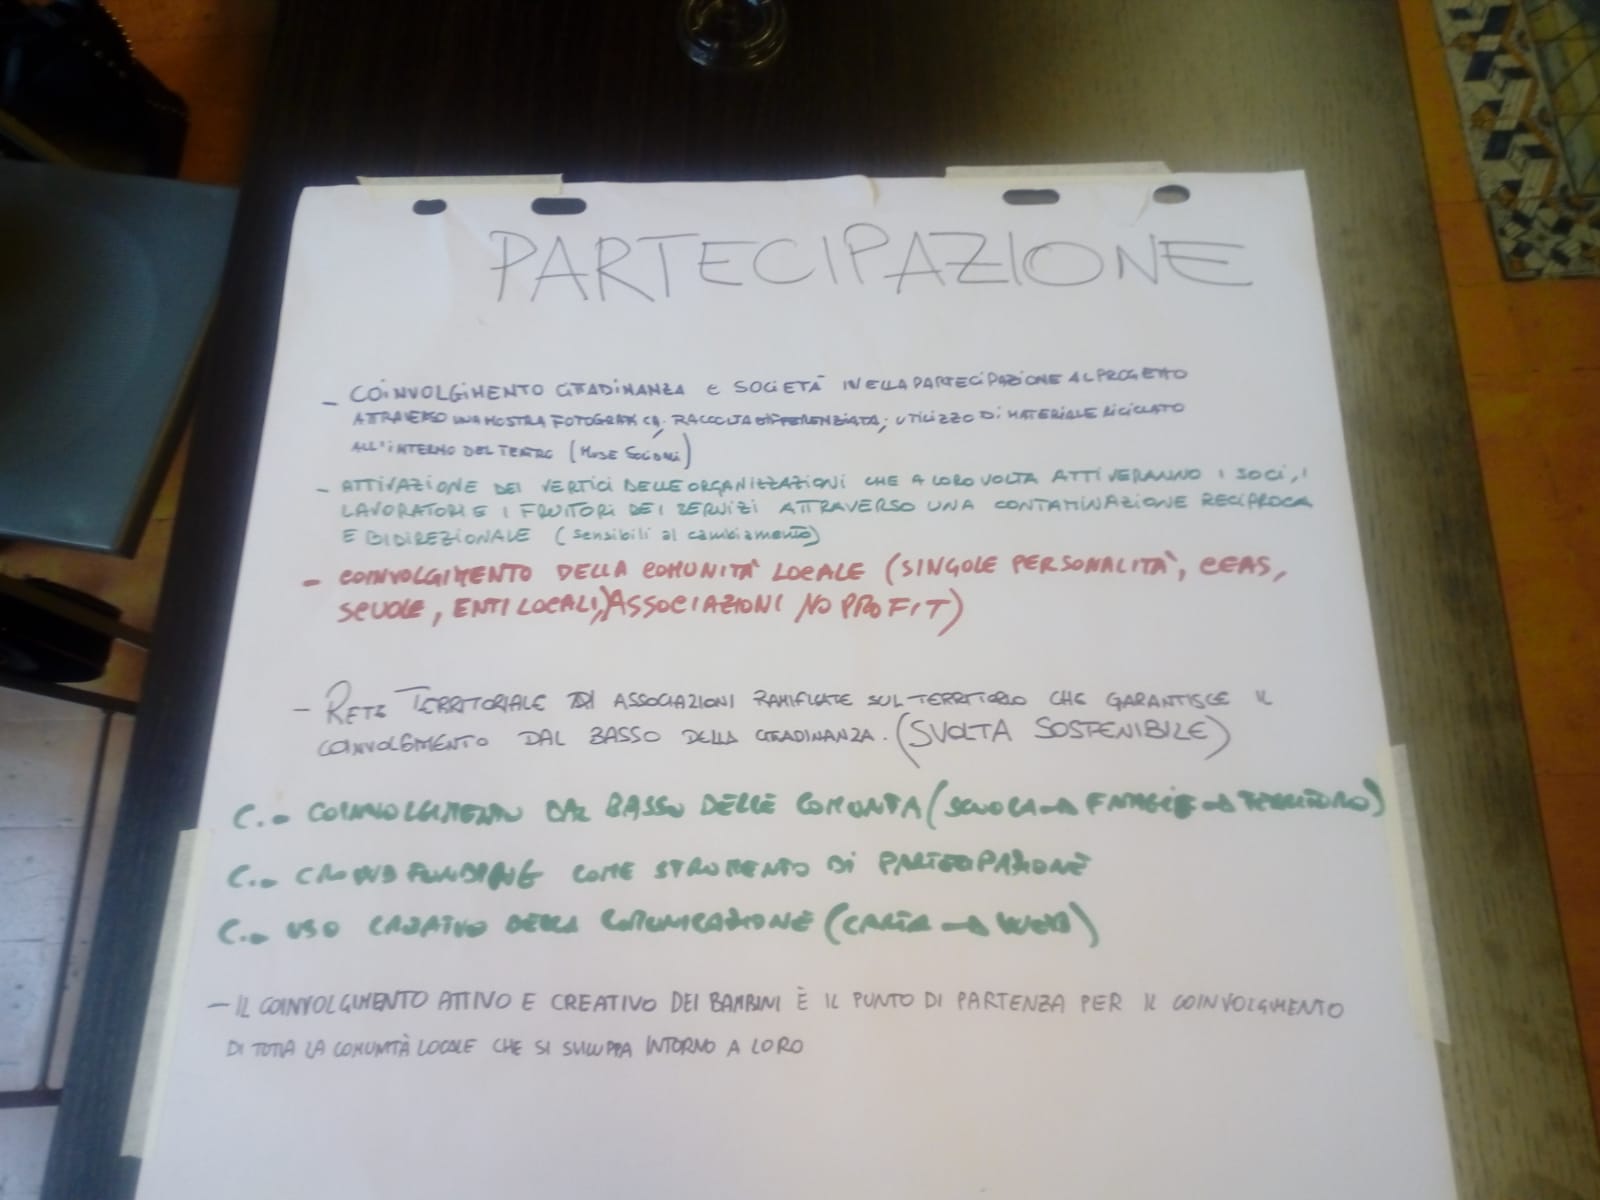 PARTECIPAZIONE
- COINVOLGIMENTO CITTADINANZA E SOCIETÀ NELLA PARTECIPAZIONE AL PROGETTO
ATTRAVERSO UNA MOSTRA FOTOGRAFICA; RACCOLTA DIFFERENZIATA; UTILIZZO DI MATERIALE RICICLATO
ALL'INTERNO DEL TEATRO (MOSE
- ATTIVAZIONE DEI VERTICI DELLE ORGANIZZAZIONI CHE A LORO VOLTA ATTIVERANNO I SOCI, I
LAVORATORI E I FRUITORI DEI SERVIZI ATTRAVERSO UNA CONTAMINAZIONE RECIPROCA
E BIDIREZIONALE (sensibili al cambiamento)
- COINVOLGIMENTO DELLA COMUNITÀ LOCALE (SINGOLE PERSONALITÀ, CEAS,
SCUOLE, ENTI LOCALI, ASSOCIAZIONI NO PROFIT)
- RETE TERRITORIALE DI ASSOCIAZIONI RAMIFICATE SUL TERRITORIO CHE GARANTISCE IL
COINVOLGIMENTO DAL BASSO DELLA CITTADINANZA. (SVOLTA SOSTENIBILE)
C.- COINVOLGIMENTO DAL BASSO DELLE COMUNITÀ (SCUOLA → FAMIGLIE → TERRITORIO)
C.- CROWDFUNDING COME STRUMENTO DI PARTECIPAZIONE
C.- USO CREATIVO DELLA COMUNICAZIONE (CARTA → WEB)
- IL COINVOLGIMENTO ATTIVO E CREATIVO DEI BAMBINI È IL PUNTO DI PARTENZA PER IL COINVOLGIMENTO
DI TUTTA LA COMUNITÀ LOCALE CHE SI SVILUPPA INTORNO A LORO